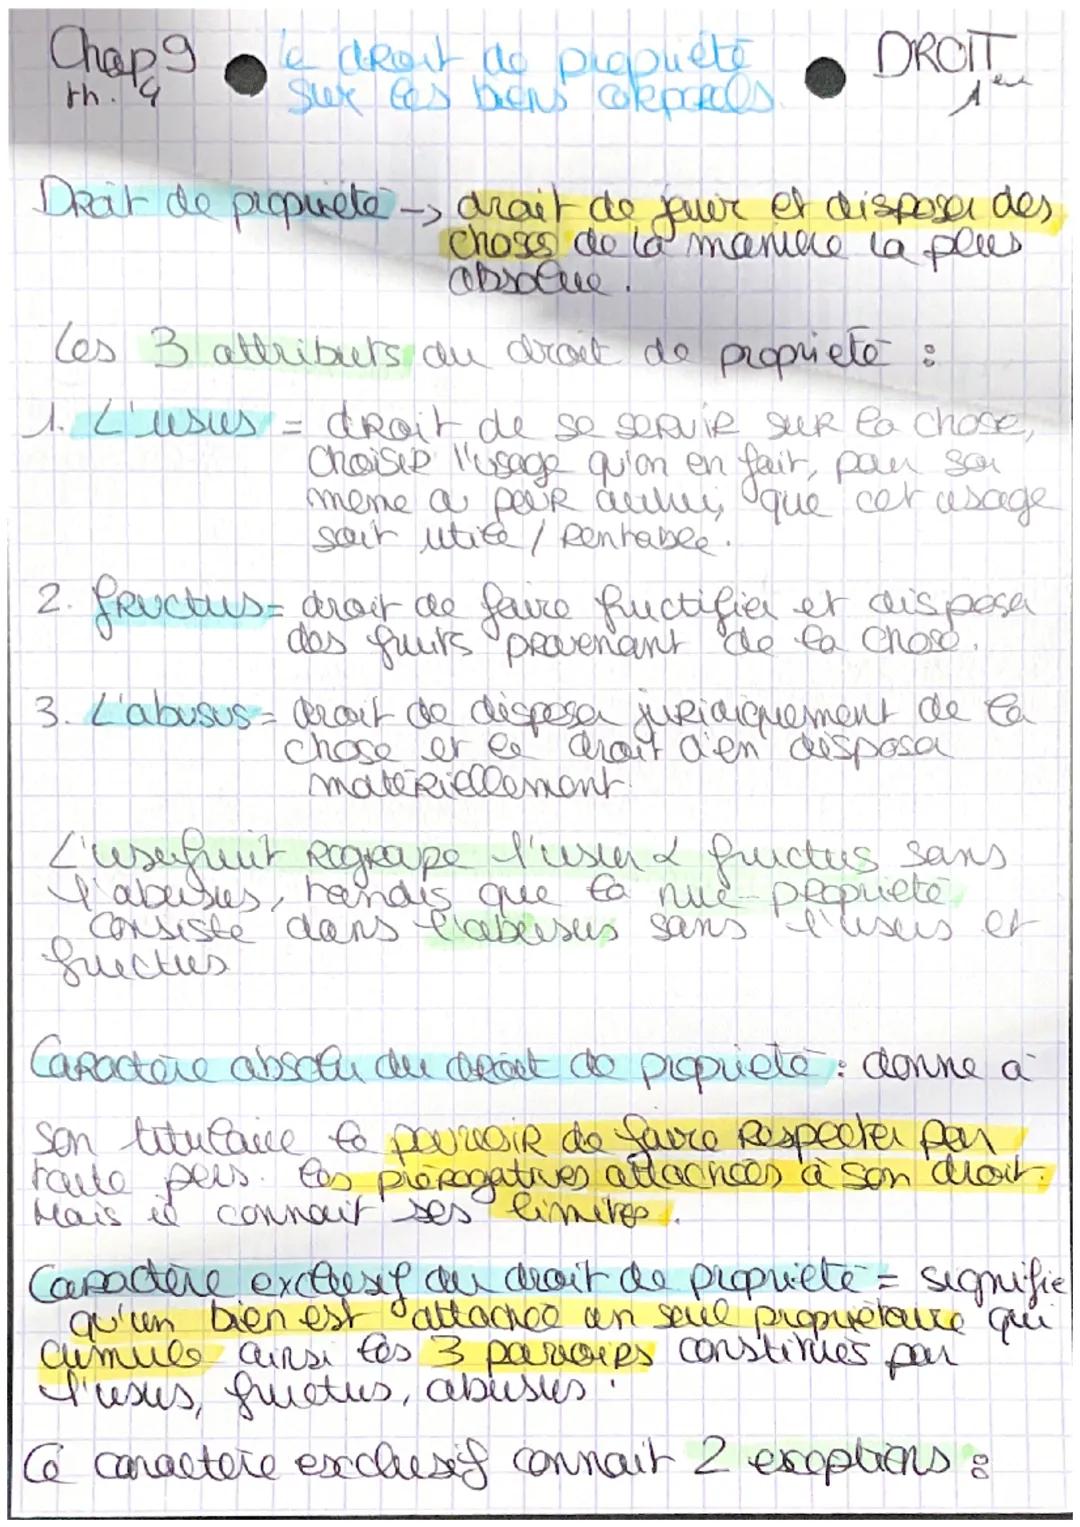 Chap 9
th. 4
le droit de propriété
sur les biens corporels.
DROIT
1ère
Droit de propriété -> droit de jouir et disposer des
choses de la manière la plus
absolue.
Les 3 attributs du droit de propriété :
1. L'usus = droit de se servir sur la chose,
choisir l'usage qu'on en fait, pour soi
même ou pour autrui, que cet usage
soit utile / rentable.
2. fructus = droit de faire fructifier et disposer
des fruits provenant de la chose.
3. L'abusus = droit de disposer juridiquement de la
chose et le droit d'en disposer
matériellement.
L'usufruit regroupe l'usus & fructus sans
l'abusus, tandis que la nue-propriété
consiste dans l'abusus sans l'usus et
fructus
Caractère absolu du droit de propriété : donne à
son titulaire le pouvoir de faire respecter par
toute pers. les prérogatives attachées à son droit.
Mais il connait ses limites.
Caractère exclusif du droit de propriété = signifie
qu'un bien est attaché un seul propriétaire qui
cumule ainsi les 3 pouvoirs constitués par
l'usus, fructus, abusus.
Ce caractère exclusif connait 2 exceptions :